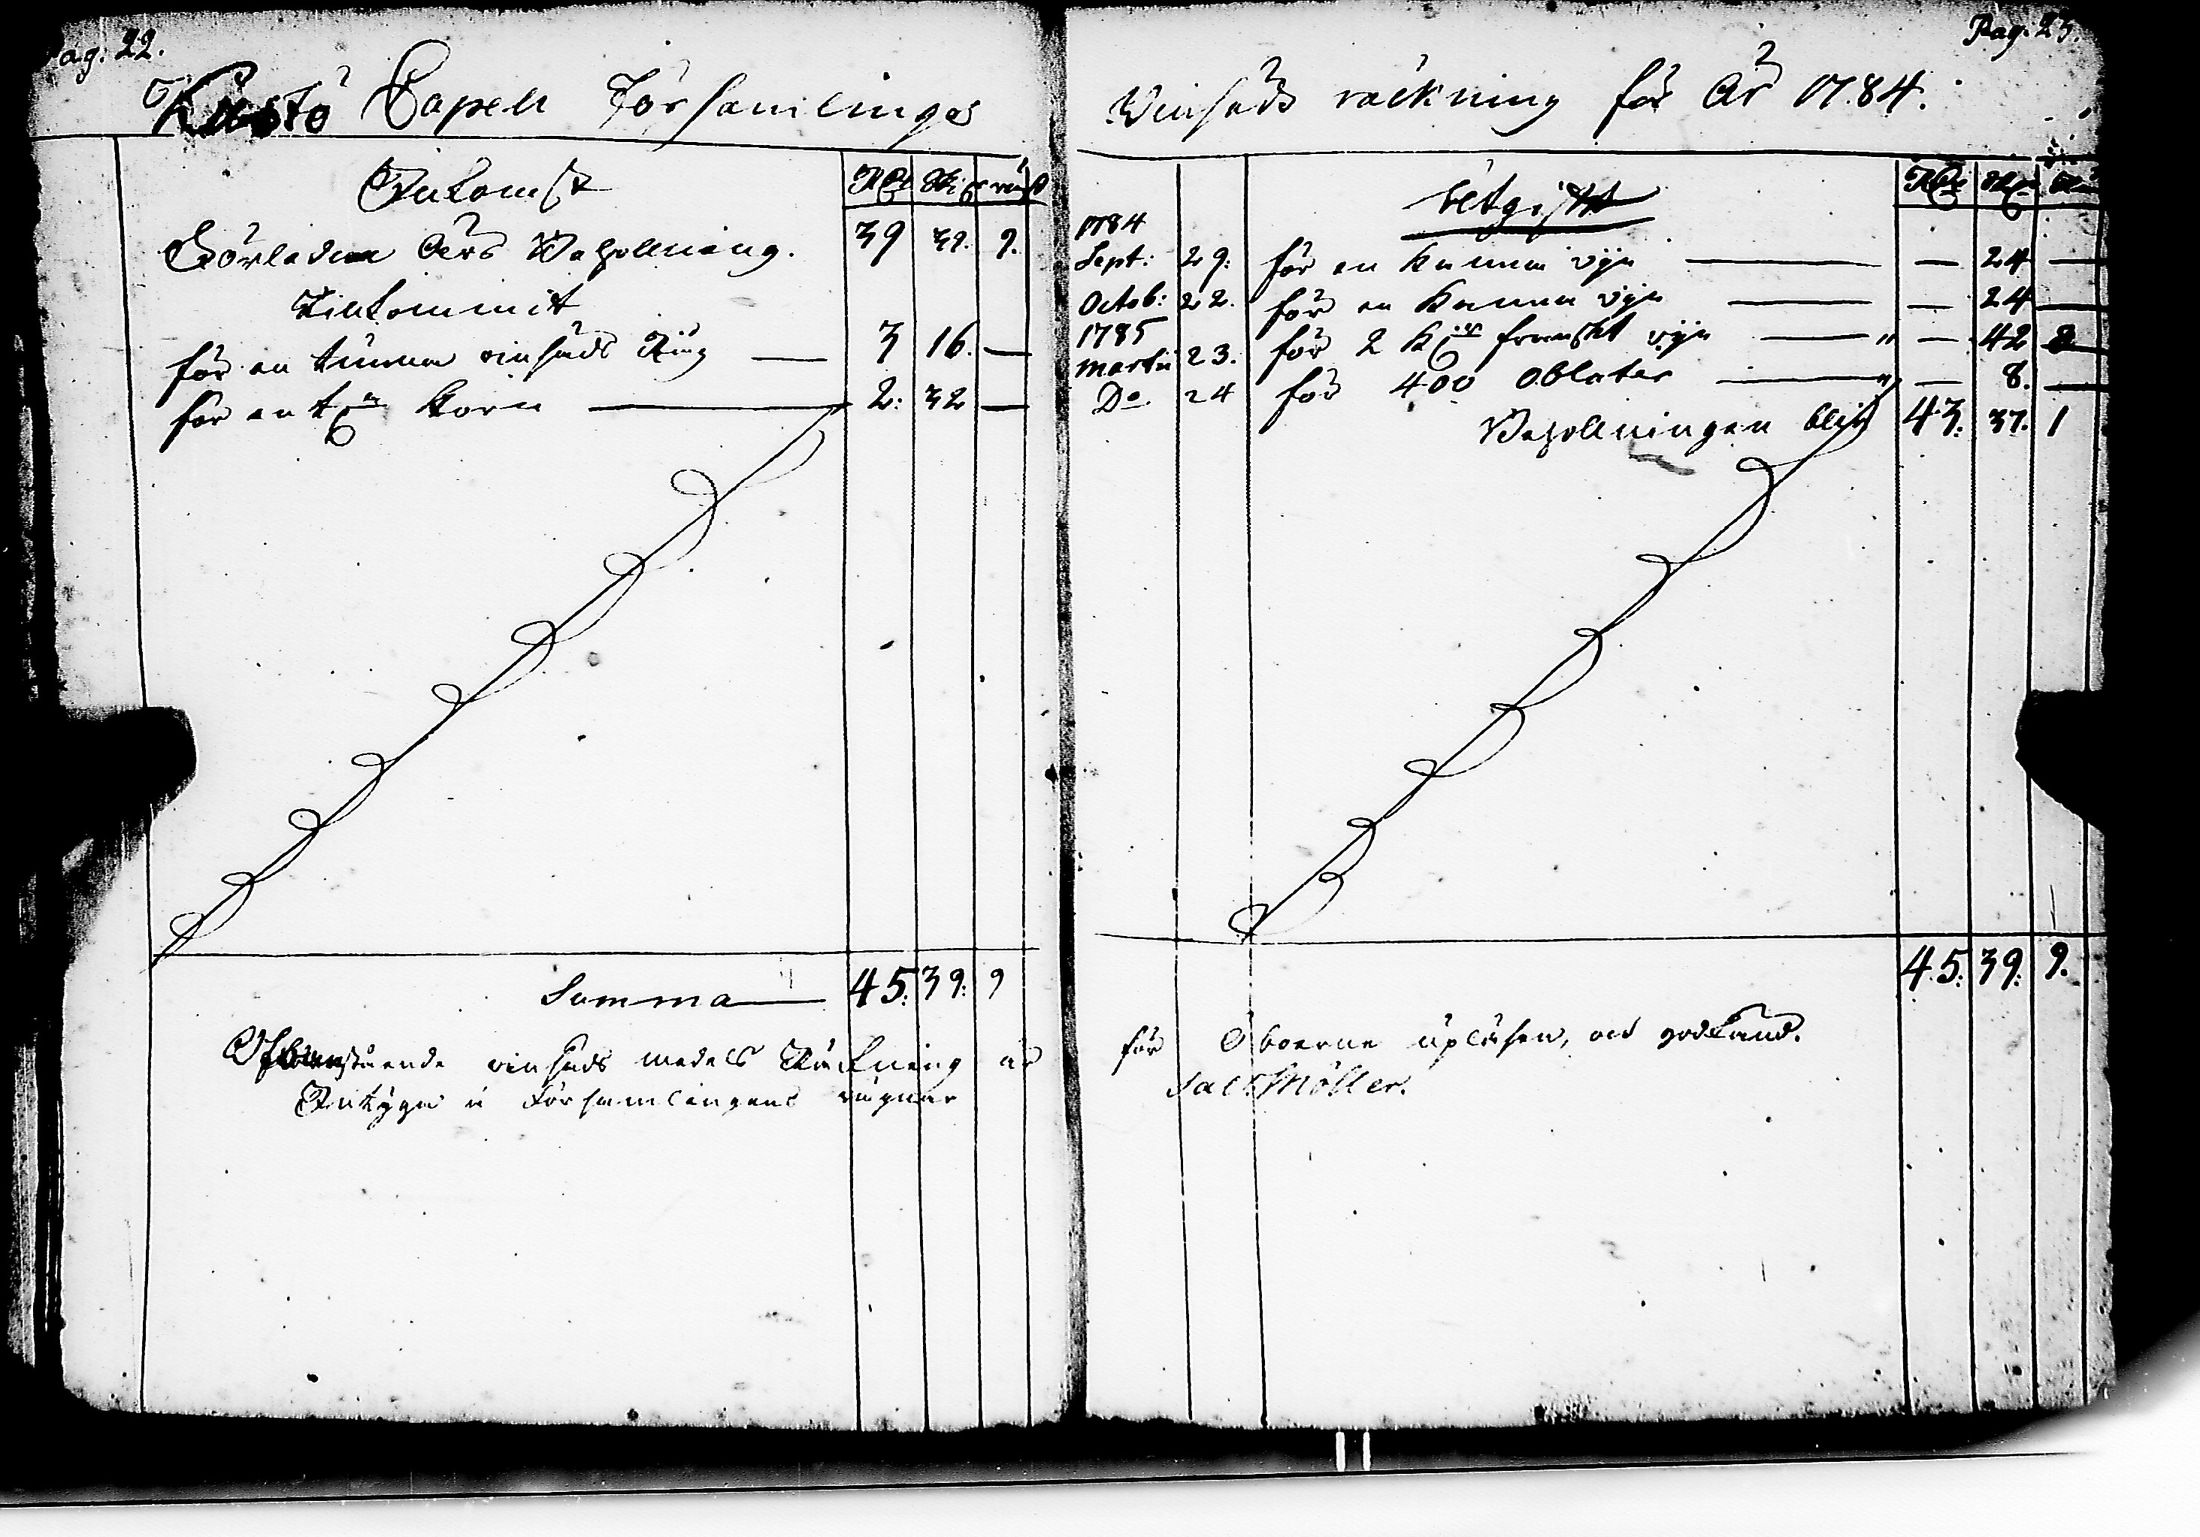 Pag: 22.
Kustö Capell Församlings
Inkomst Rd Skil rust
Förledne Års Behollning. 39 39. 9.
Tilkommit
för en tunna vinsäds Råg — 3 16. —
för en tn korn — 2: 32 —
Summa — 45: 39: 9
Ofvanstående vinsäds medels Räkning är
Intygar å Församlingens vägnar
Pag. 23.
Vinsäds räckning för År 1784.
Utgift
1784
Sept: 29: för en kanna vijn — — 24 —
Octob: 22. för en kanna vijn — — 24 —
1785
Martii 23. för 2 Kr franskt vijn — " — 42 8
Do 24 för 400 Oblater — " — 8. —
Behollningen blir 43: 37. 1
45: 39: 9.
för Åboerne upläsen, och godkänd.
Jac: Möller.